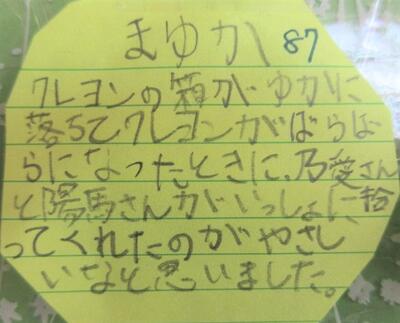 まゆか 87
クレヨンの箱がゆかに
落ちてクレヨンがばらば
らになったときに、乃愛さん
と陽馬さんがいっしょに拾
ってくれたのがやさし
いなと思いました。